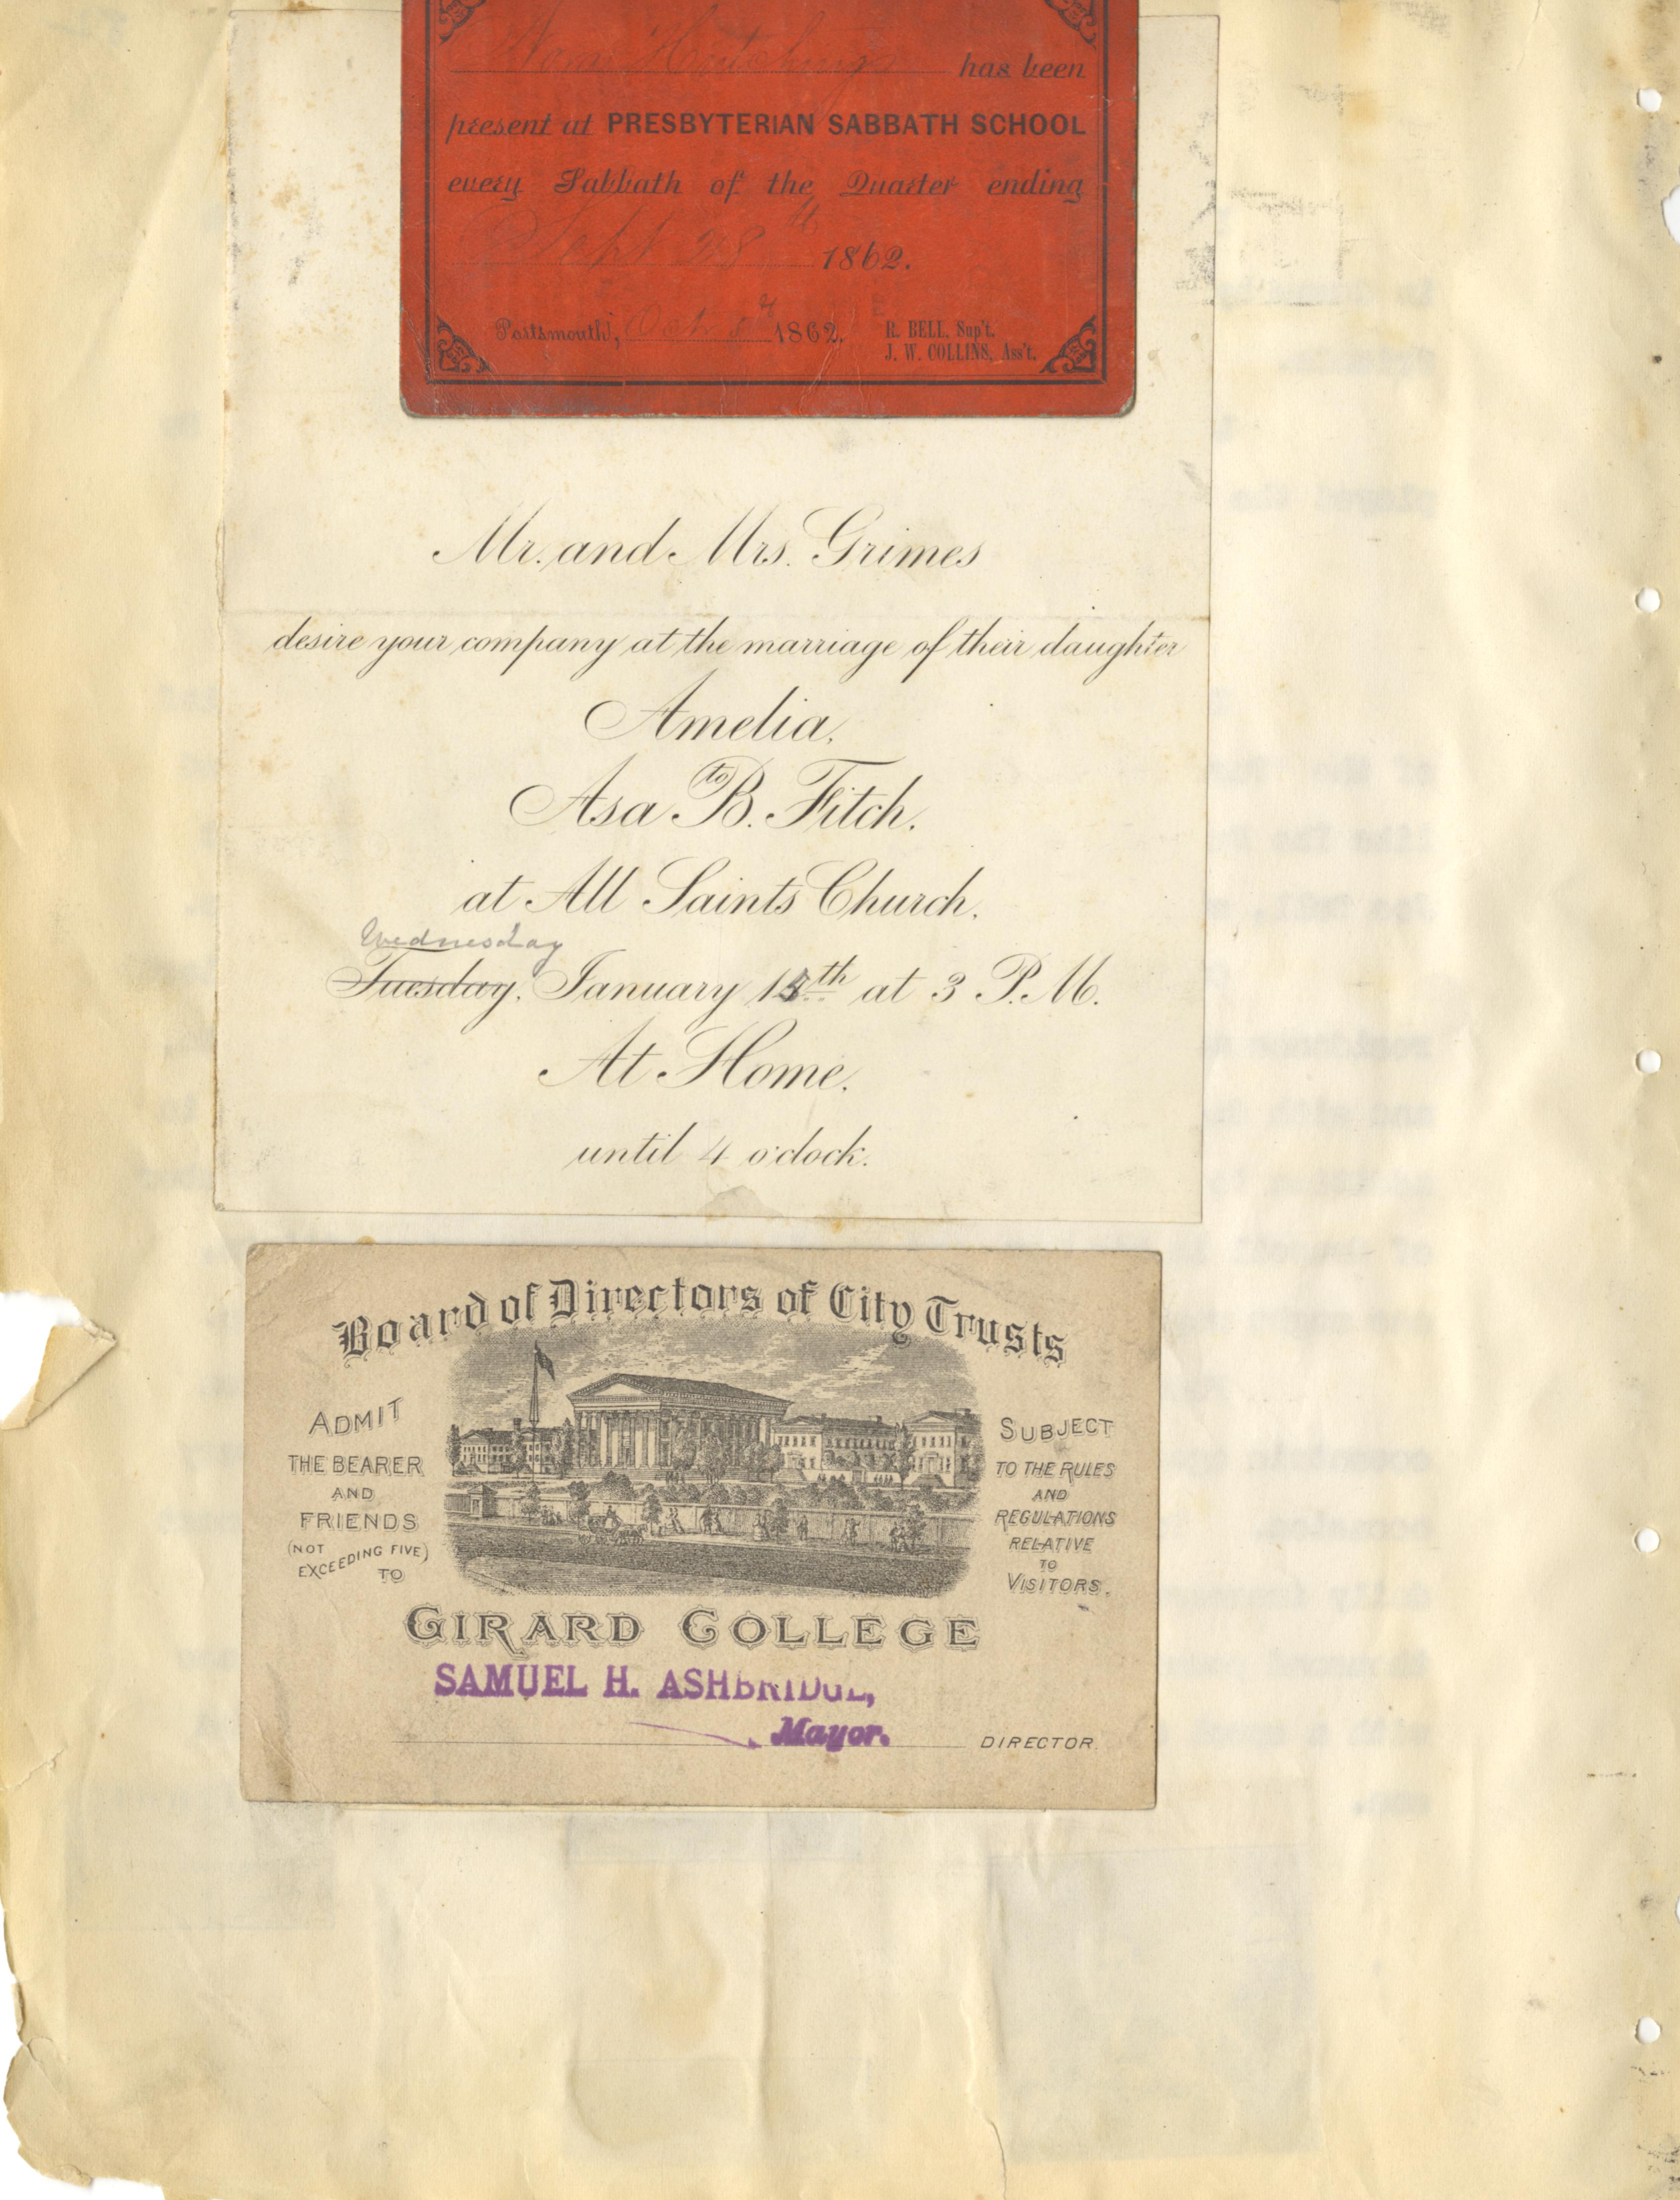 Hutchings has been
present at PRESBYTERIAN SABBATH SCHOOL
every Sabbath of the Quarter ending
Sept 28th 1862.
Portsmouth, Oct 1862.
R. BELL, Sup't.
J. W. COLLINS, Ass't.
Mr. and Mrs. Grimes
desire your company at the marriage of their daughter
Amelia,
to
Asa B. Fitch,
at All Saints Church,
Wednesday
Tuesday, January at 3 P.M.
At Home,
until 4 o'clock.
Board of Directors of City Trusts
ADMIT
THE BEARER
AND
FRIENDS
(NOT
EXCEEDING FIVE)
TO
SUBJECT
TO THE RULES
AND
REGULATIONS
RELATIVE
TO
VISITORS.
GIRARD COLLEGE
SAMUEL H. ASHBRIDGE,
Mayor.
DIRECTOR